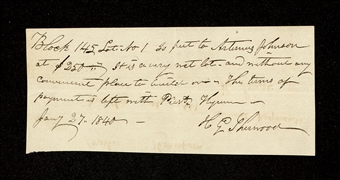 Block 145 Lot No 1 is sett to Artemus Johnson
at $250 — It is a very wet lot – and without any
convenient place to build on – The terms of
payment is left with Prest Hyrum –
Jany 27. 1840 –
H G Sherwood